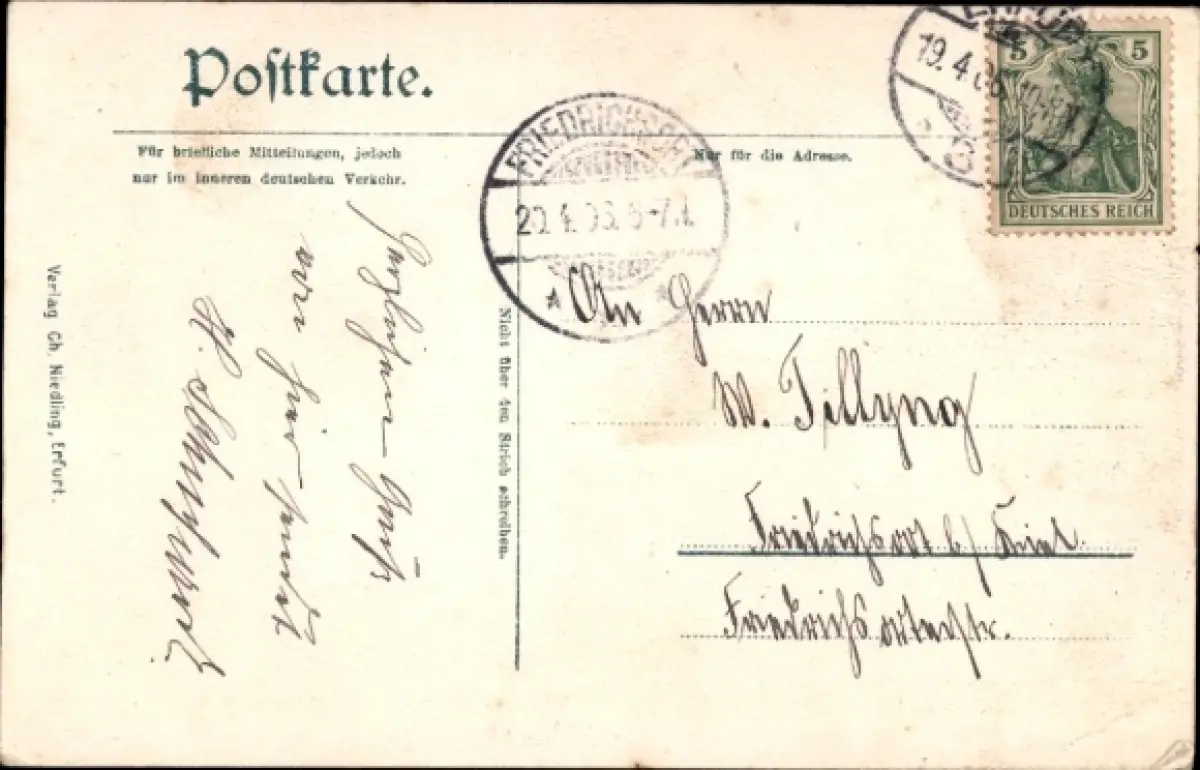 Postkarte.
Für briefliche Mitteilungen, jedoch
nur im inneren deutschen Verkehr.
Nur für die Adresse.
5 5
DEUTSCHES REICH
ERFURT
19.4.06
FRIEDRICHSORT
20.4.06.6-7.V.
An Herrn
W. Tillyng
Friedrichsort b/ Kiel.
Friedrichsorterstr.
Nicht über den Strich schreiben.
Herzlichen Gruß
von hier sendet
H.
Verlag Ch. Niedling, Erfurt.